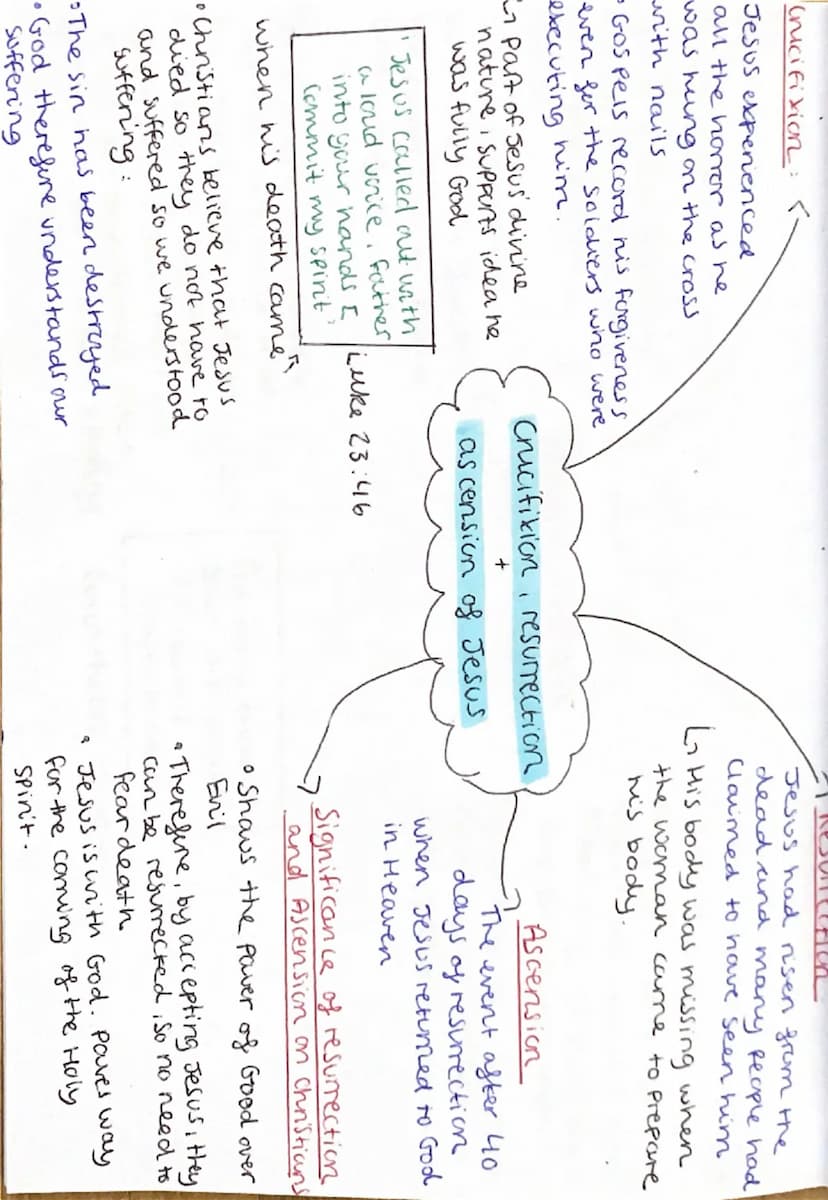 Crucifixion:
Jesus experienced
all the horror as he
was hung on the cross
with nails
• Gospels record his forgiveness
even for the soldiers who were
executing him.
↳ part of Jesus' divine
nature, supports idea he
was fully God
'Jesus called out with
a loud voice, Father
into your hands I
commit my spirit'
Luke 23:46
when his death came
• Christians believe that Jesus
died so they do not have to
and suffered so we understood
suffering:
• The sin has been destroyed
• God therefore understands our
suffering
crucifixion, resurrection
+
ascension of Jesus
Resurrection
Jesus had risen from the
dead and many people had
claimed to have seen him
↳ His body was missing when
the woman came to prepare
his body.
Ascension
The event after 40
days of resurrection
when Jesus returned to God
in Heaven
Significance of resurrection
and Ascension on Christians
• Shows the power of Good over
Evil
• Therefore, by accepting Jesus, they
can be resurrected, so no need to
fear death
• Jesus is with God. Paves way
for the coming of the Holy
Spirit.